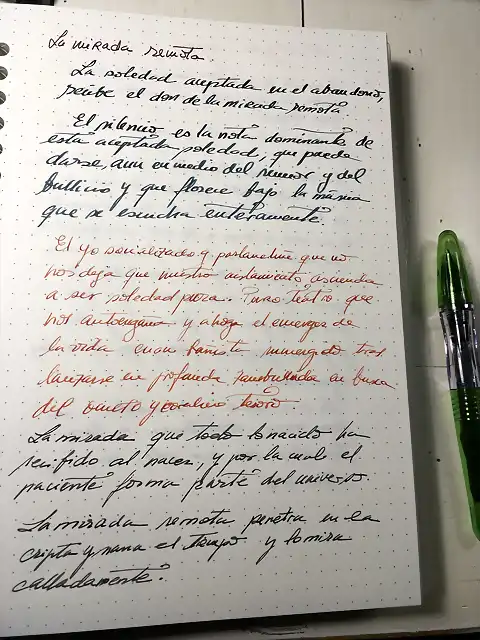 La mirada remota.
La soledad aceptada en el abandono,
recibe el don de la mirada remota
El silencio es la nota dominante de
esta aceptada soledad, que puede
darse, aun en medio del rumor y del
bullicio y que florece bajo la música
que se escucha enteramente.
El yo socializado y parlanchín que no
nos deja que nuestro aislamiento ascienda
a ser soledad pura. Puro teatro que
nos autoengaña y ahoga el emerger de
la vida cual sumergido tras
lanzarse en profunda zambullida en busca
del oculto y tesoro
La mirada que todo lo nacido ha
recibido al nacer, y por la cual el
naciente forma parte del universo.
La mirada remota penetra en la
cripta y el tiempo y lo mira
calladamente.